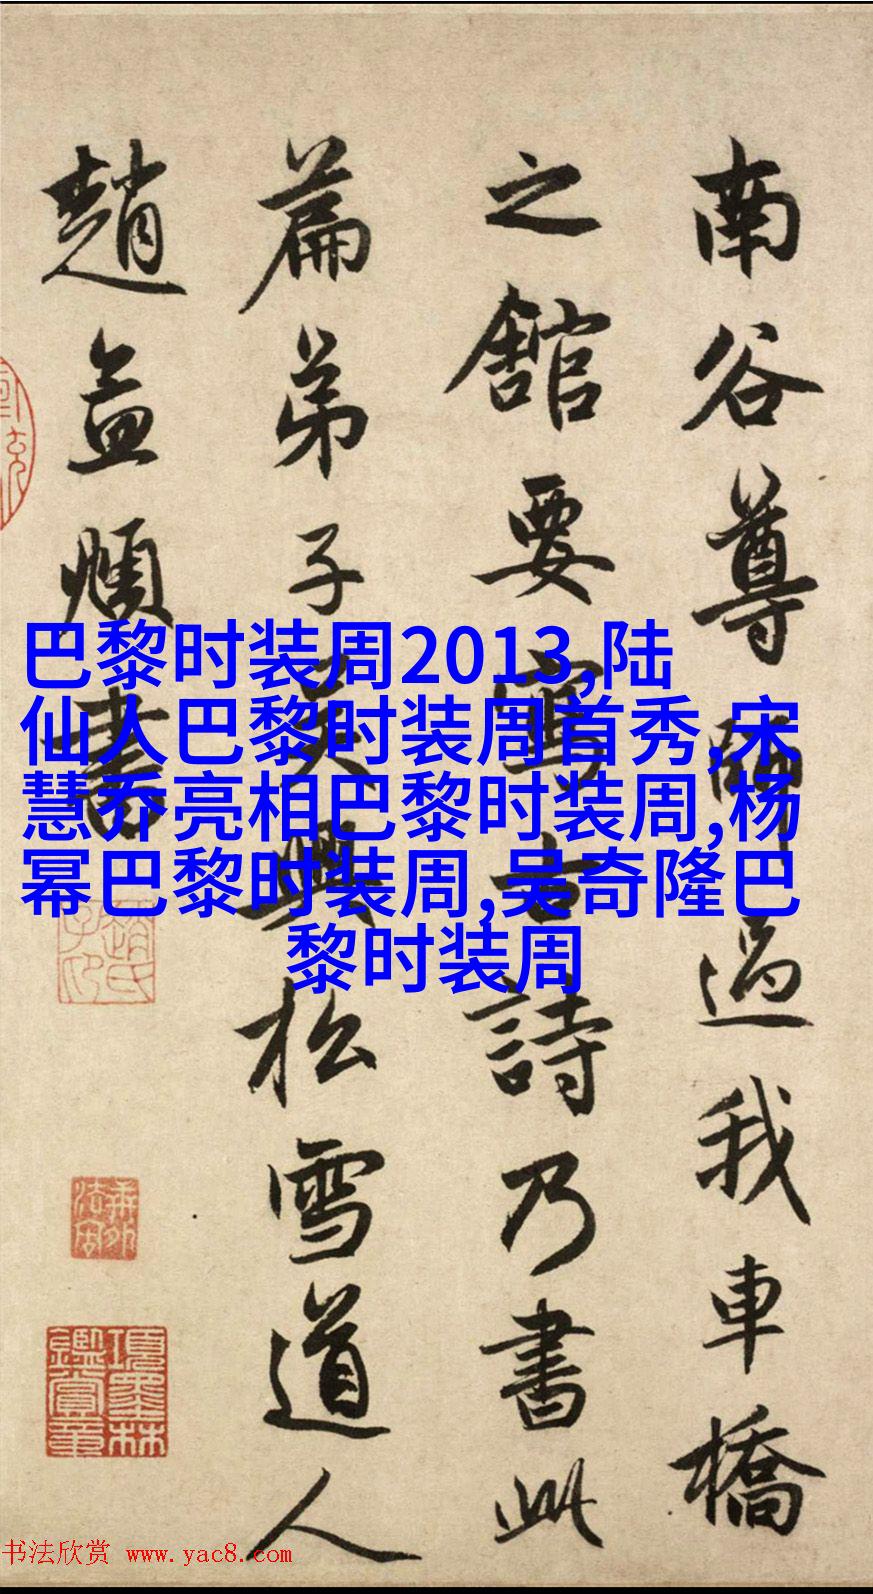 南谷尊師過我車橋
之舘要寫古詩乃書此
篇弟子吳興松雪道人
趙孟頫書
巴黎时装周2013,陆
仙人巴黎时装周首秀,宋
慧乔亮相巴黎时装周,杨
幂巴黎时装周,吴奇隆巴
黎时装周
趙氏子印
項墨林鑑賞章
书法欣赏 www.yac8.com